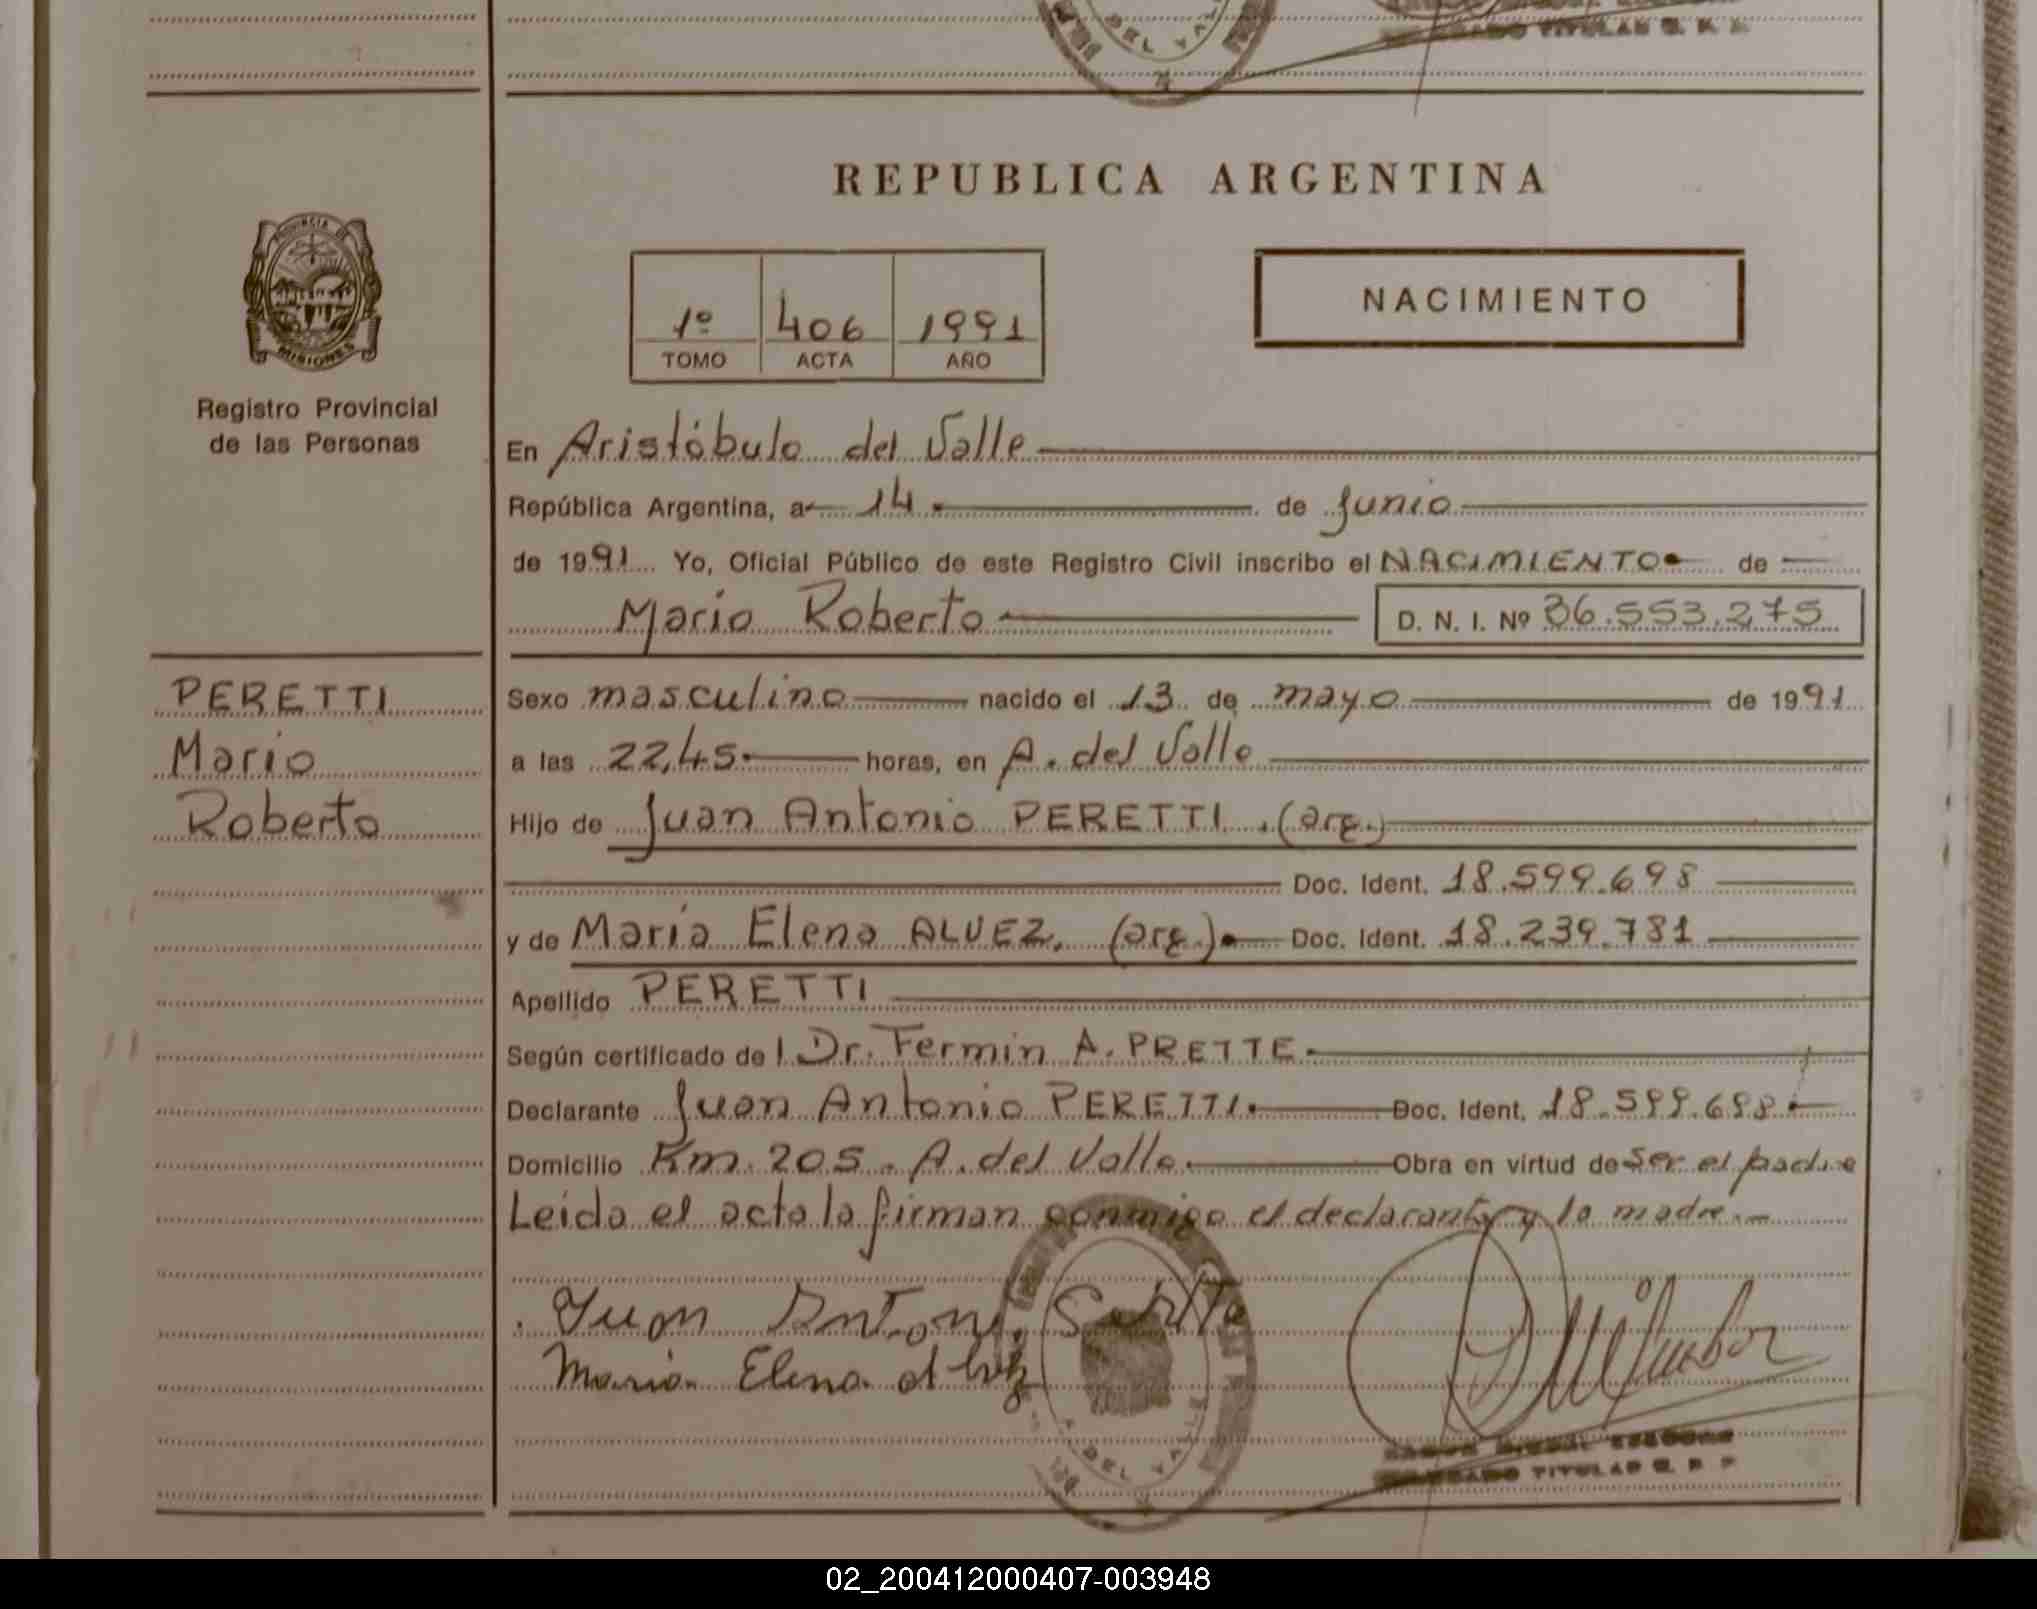 DEL VA
TITULAR
REPUBLICA ARGENTINA
PROVINCIA DE
MISIONES
Registro Provincial
de las Personas
1º 406 1991
TOMO ACTA AÑO
NACIMIENTO
En Aristóbulo del Valle
República Argentina, a 14 de Junio
de 1991 Yo, Oficial Público de este Registro Civil inscribo el NACIMIENTO de
Mario Roberto D. N. I. Nº 36.553.275
PERETTI
Mario
Roberto
Sexo masculino nacido el 13 de mayo de 1991
a las 22,45 horas, en A. del Valle
Hijo de Juan Antonio PERETTI. (arg.)
Doc. Ident. 18.599.698
y de María Elena ALVEZ. (arg.) Doc. Ident. 18.239.781
Apellido PERETTI
Según certificado de l Dr. Fermin A. PRETTE
Declarante Juan Antonio PERETTI. Doc. Ident. 18.599.698
Domicilio Km. 205. A. del Valle. Obra en virtud de ser el padre
Leida el acta la firman conmigo el declarante y la madre.
Juan
Maria Elena
A. DEL VALLE
TITULAR
02_200412000407-003948